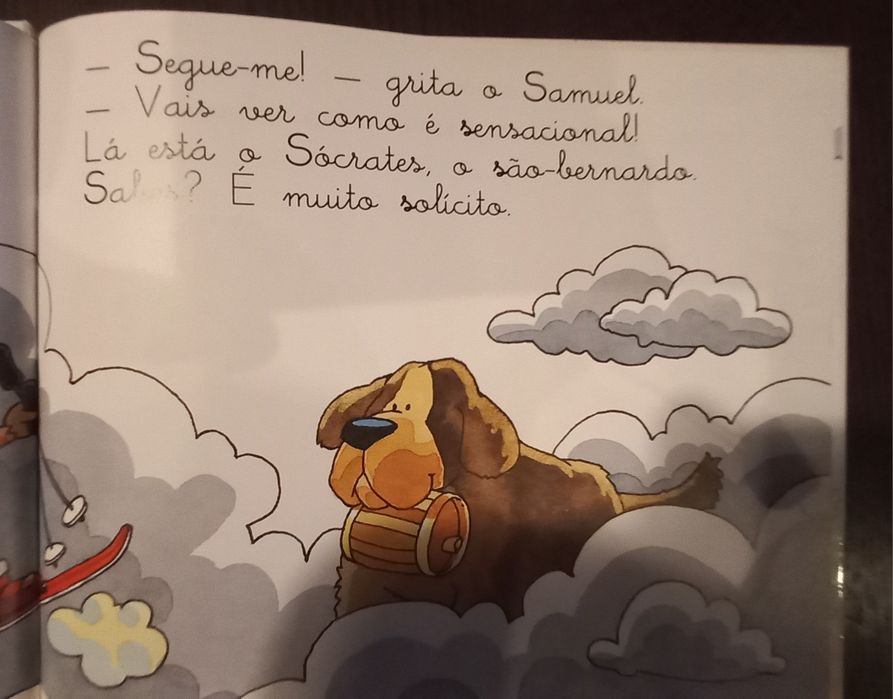 — Segue-me! — grita o Samuel.
— Vais ver como é sensacional!
Lá está o Sócrates, o são-bernardo.
É muito solícito.